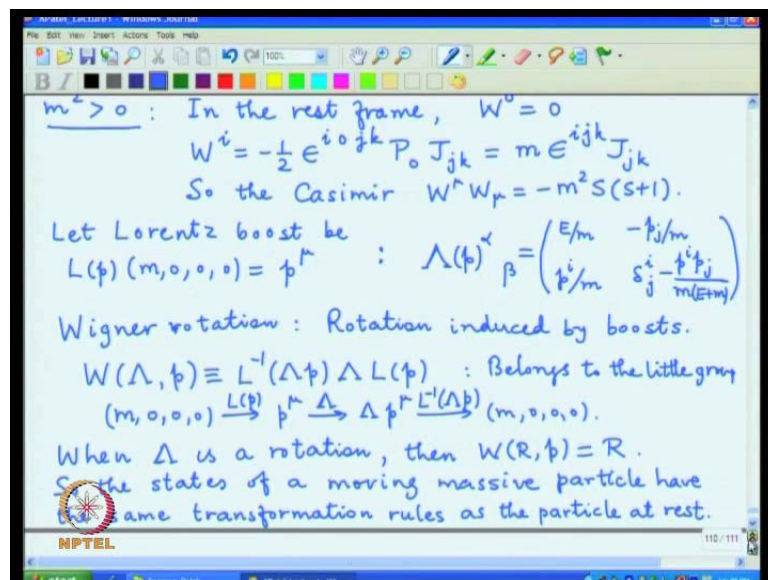 APatel_Lecture1 - Windows Journal
File Edit View Insert Actions Tools Help
100%
B I
m² > 0 : In the rest frame, W⁰ = 0
Wⁱ = -½ ε^{i0jk} P₀ J_{jk} = m ε^{ijk} J_{jk}
So the Casimir W^μ W_μ = -m² S(S+1).
Let Lorentz boost be
L(p) (m,0,0,0) = p^μ : Λ(p)^α_β = ( E/m -p_j/m
pⁱ/m δⁱ_j - pⁱp_j/m(E+m) )
Wigner rotation : Rotation induced by boosts.
W(Λ,p) ≡ L⁻¹(Λp) Λ L(p) : Belongs to the little group
(m,0,0,0) —L(p)→ p^μ —Λ→ Λp^μ —L⁻¹(Λp)→ (m,0,0,0).
When Λ is a rotation, then W(R,p) = R.
So the states of a moving massive particle have
the same transformation rules as the particle at rest.
NPTEL
110 / 111
start